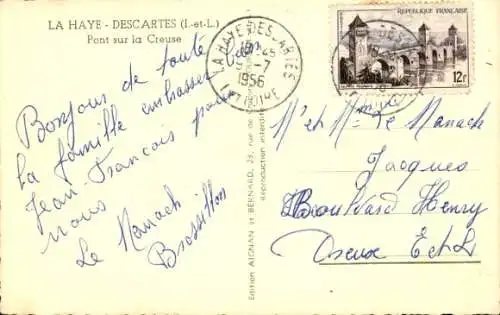 LA HAYE - DESCARTES (I.-et-L.)
Pont sur la Creuse
Bonjour de toute
la famille embrasser bien
Jean-Francois pour
nous
Le Manach
Brossillon
LA HAYE-DESCARTES
-7
1956
RÉPUBLIQUE FRANÇAISE
12f
Edition AIGNAN et BERNARD, 29, rue de
Reproduction interdite
M. et Mme Le Manach
Jacques
Boulevard Henry
Dreux E et L